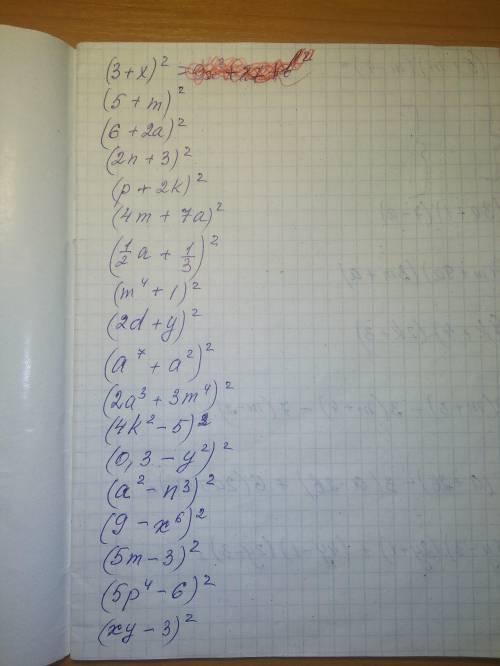 (3+x)² =
(5+m)²
(6+2a)²
(2n+3)²
(p+2k)²
(4m+7a)²
(1/2 a + 1/3)²
(m⁴+1)²
(2d+y)²
(a⁷+a²)²
(2a³+3m⁴)²
(4k²-5)²
(0,3-y²)²
(a²-n³)²
(9-x⁶)²
(5m-3)²
(5p⁴-6)²
(xy-3)²